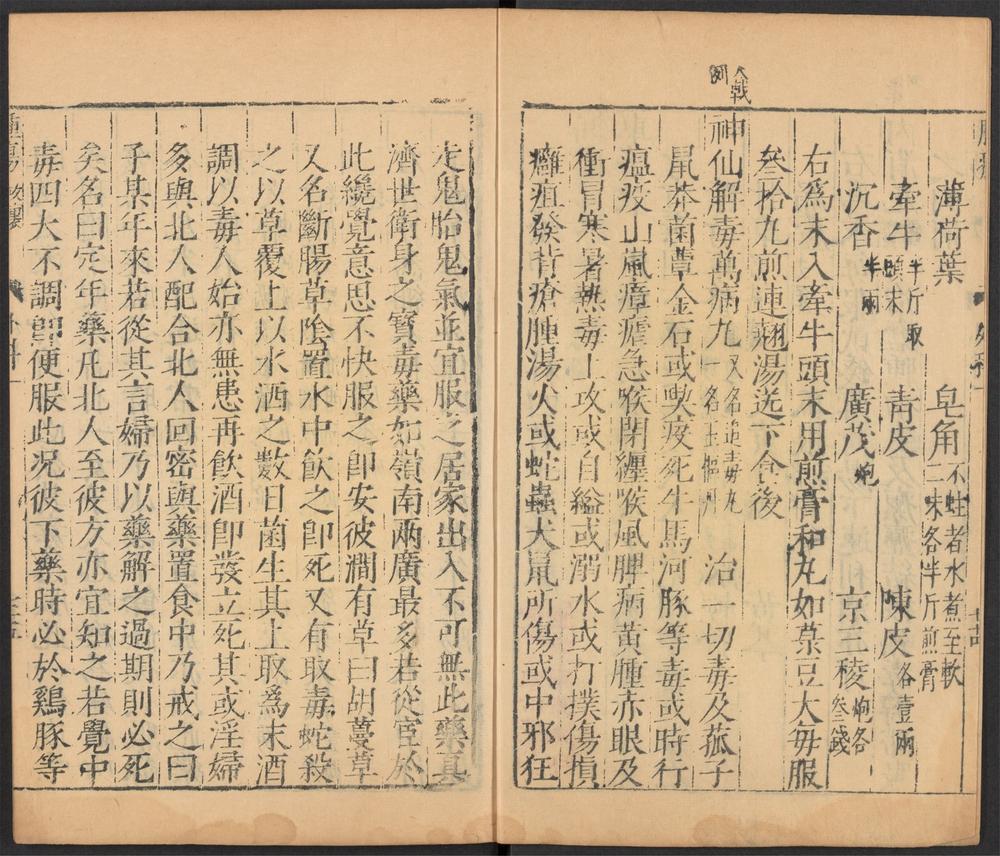 薄荷葉 皂角不蛀者水煮至軟二味各半斤煎膏
牽牛半斤取頭末 青皮 陳皮各壹兩
沉香半兩 廣茂炮 京三稜炮各叁錢
右爲末入牽牛頭末用煎膏和丸如菉豆大每服
叁拾九煎連翹湯送下食後
神仙解毒萬病丸又名追毒丸一名玉樞丹 治一切毒及菰子
鼠莽菌蕈金石或喫疫死牛馬河豚等毒或時行
瘟疫山嵐瘴瘧急喉閉纏喉風脾病黃腫赤眼及
衝冒寒暑熱毒上攻或自縊或溺水或打撲傷損
癰疽發背瘡腫湯火或蛇蟲犬鼠所傷或中邪狂
走鬼胎鬼氣並宜服之居家出入不可無此藥真
濟世衛身之寶毒藥如嶺南兩廣最多若從宦於
此纔覺意思不快服之卽安彼澗有草曰胡蔓草
又名斷腸草陰置水中飲之卽死又有取毒蛇殺
之以草覆上以水酒之數日菌生其上取爲末酒
調以毒人始亦無患再飲酒卽發立死其或淫婦
多與北人配合北人回密與藥置食中乃戒之曰
子某年來若從其言婦乃以藥解之過期則必死
矣名曰定年藥凡北人至彼方亦宜知之若覺中
毒四大不調卽便服此况彼下藥時必於鷄豚等